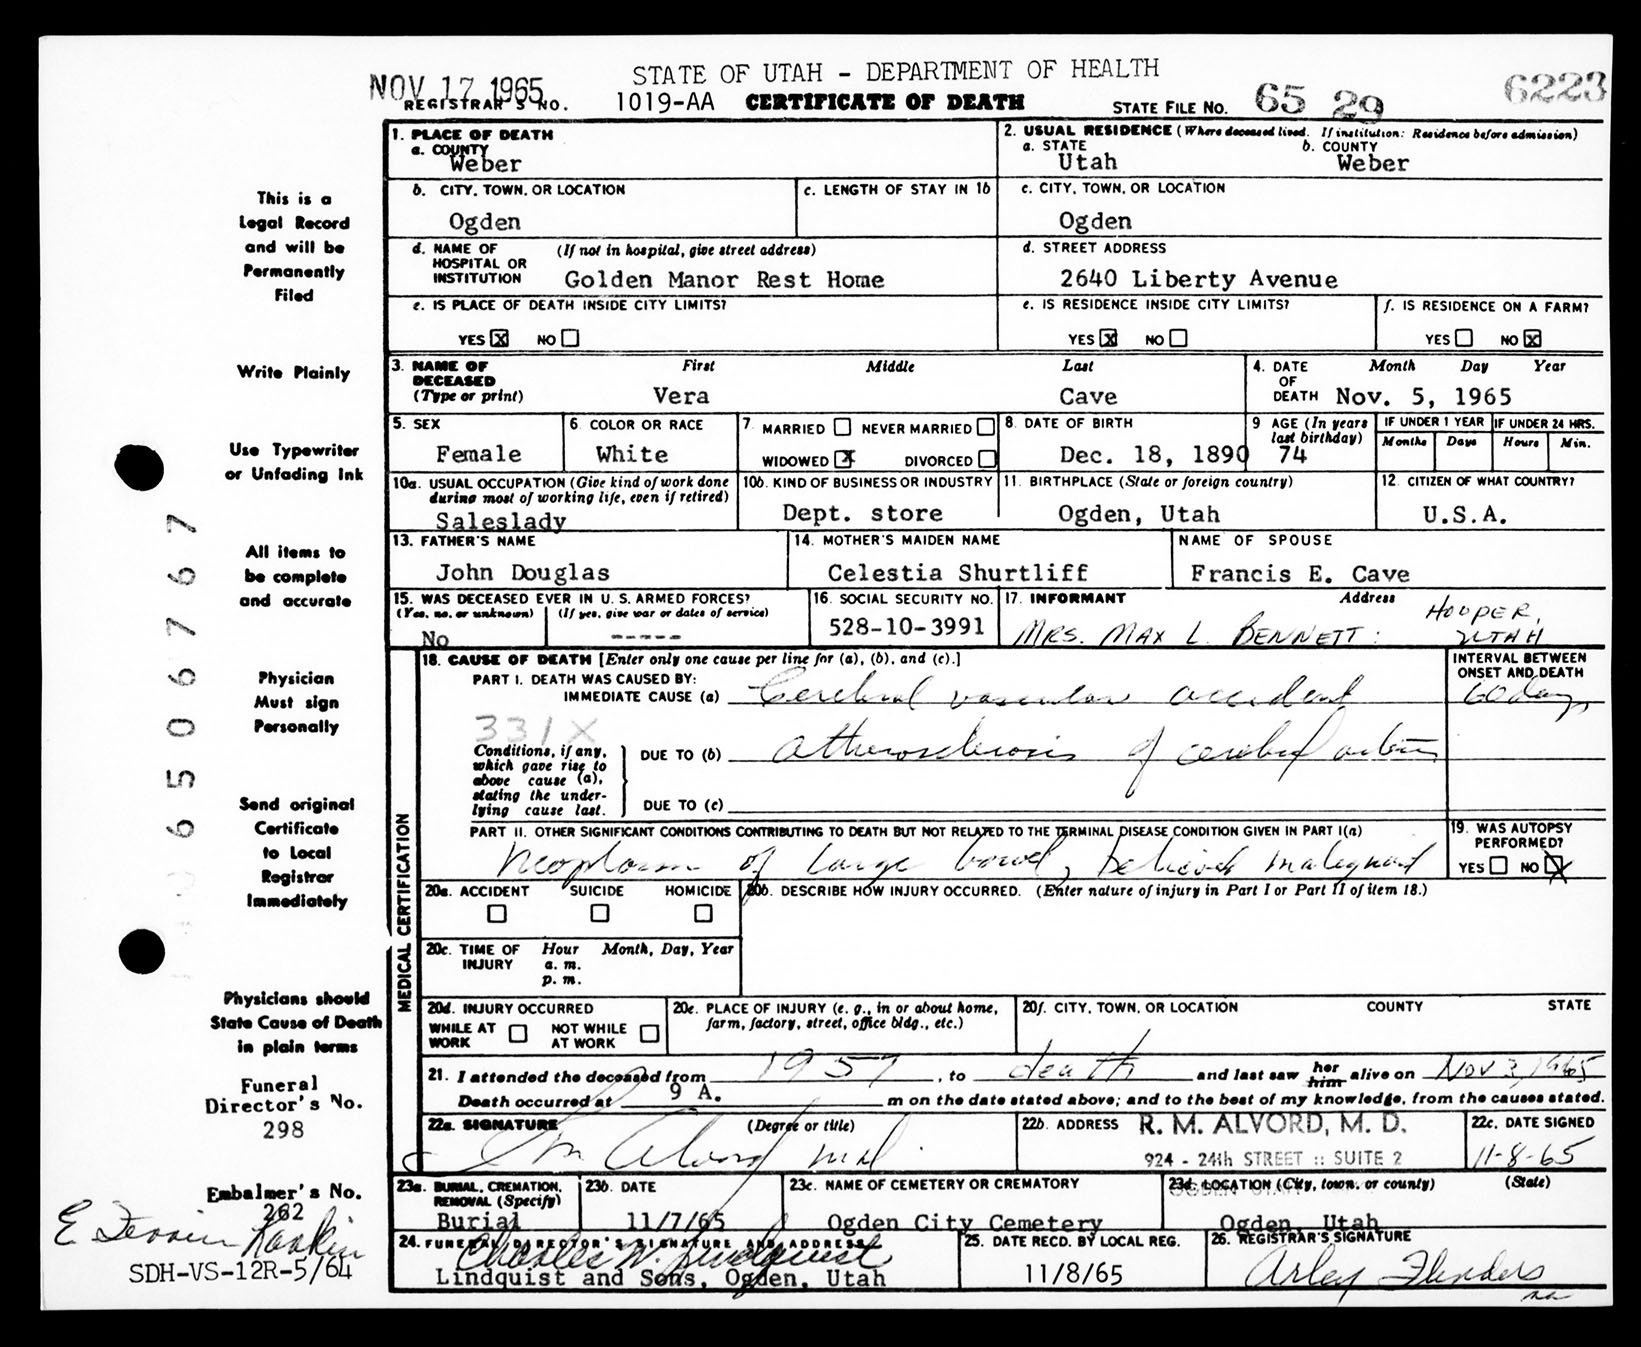 STATE OF UTAH - DEPARTMENT OF HEALTH
NOV 17 1965
REGISTRAR'S NO. 1019-AA CERTIFICATE OF DEATH STATE FILE NO. 65 29 6223
This is a
Legal Record
and will be
Permanently
Filed
Write Plainly
Use Typewriter
or Unfading Ink
All items to
be complete
and accurate
Physician
Must sign
Personally
Send original
Certificate
to Local
Registrar
Immediately
Physicians should
State Cause of Death
in plain terms
Funeral
Director's No.
298
Embalmer's No.
262
SDH-VS-12R-5/64
65067767
1. PLACE OF DEATH
a. COUNTY
Weber
2. USUAL RESIDENCE (Where deceased lived. If institution: Residence before admission)
a. STATE b. COUNTY
Utah Weber
b. CITY, TOWN, OR LOCATION
Ogden
c. LENGTH OF STAY IN 1b
c. CITY, TOWN, OR LOCATION
Ogden
d. NAME OF (If not in hospital, give street address)
HOSPITAL OR
INSTITUTION Golden Manor Rest Home
d. STREET ADDRESS
2640 Liberty Avenue
e. IS PLACE OF DEATH INSIDE CITY LIMITS?
YES X NO
e. IS RESIDENCE INSIDE CITY LIMITS?
YES X NO
f. IS RESIDENCE ON A FARM?
YES NO X
3. NAME OF First Middle Last
DECEASED
(Type or print) Vera Cave
4. DATE Month Day Year
OF
DEATH Nov. 5, 1965
5. SEX
Female
6. COLOR OR RACE
White
7. MARRIED NEVER MARRIED
WIDOWED X DIVORCED
8. DATE OF BIRTH
Dec. 18, 1890
9 AGE (In years
last birthday)
74
IF UNDER 1 YEAR
Months Days
IF UNDER 24 HRS.
Hours Min.
10a. USUAL OCCUPATION (Give kind of work done
during most of working life, even if retired)
Saleslady
10b. KIND OF BUSINESS OR INDUSTRY
Dept. store
11. BIRTHPLACE (State or foreign country)
Ogden, Utah
12. CITIZEN OF WHAT COUNTRY?
U.S.A.
13. FATHER'S NAME
John Douglas
14. MOTHER'S MAIDEN NAME
Celestia Shurtliff
NAME OF SPOUSE
Francis E. Cave
15. WAS DECEASED EVER IN U.S. ARMED FORCES?
(Yes, no, or unknown) (If yes, give war or dates of service)
No -----
16. SOCIAL SECURITY NO.
528-10-3991
17. INFORMANT Address
MRS. MAX L. BENNETT: HOOPER,
UTAH
MEDICAL CERTIFICATION
18. CAUSE OF DEATH [Enter only one cause per line for (a), (b), and (c).]
INTERVAL BETWEEN
ONSET AND DEATH
PART I. DEATH WAS CAUSED BY:
IMMEDIATE CAUSE (a) Cerebral vascular accident 60 days
331X
Conditions, if any,
which gave rise to
above cause (a),
stating the under-
lying cause last.
DUE TO (b) atherosclerosis of cerebral arteries
DUE TO (c)
PART II. OTHER SIGNIFICANT CONDITIONS CONTRIBUTING TO DEATH BUT NOT RELATED TO THE TERMINAL DISEASE CONDITION GIVEN IN PART I(a)
Neoplasm of large bowel, believed malignant
19. WAS AUTOPSY
PERFORMED?
YES NO X
20a. ACCIDENT SUICIDE HOMICIDE
20b. DESCRIBE HOW INJURY OCCURRED. (Enter nature of injury in Part I or Part II of item 18.)
20c. TIME OF Hour Month, Day, Year
INJURY a. m.
p. m.
20d. INJURY OCCURRED
WHILE AT NOT WHILE
WORK AT WORK
20e. PLACE OF INJURY (e. g., in or about home,
farm, factory, street, office bldg., etc.)
20f. CITY, TOWN, OR LOCATION COUNTY STATE
21. I attended the deceased from 1957, to death and last saw her him alive on Nov 3, 1965
Death occurred at 9 A. m on the date stated above; and to the best of my knowledge, from the causes stated.
22a. SIGNATURE (Degree or title)
R M Alvord MD.
22b. ADDRESS R. M. ALVORD, M. D.
924 - 24th STREET :: SUITE 2
OGDEN, UTAH
22c. DATE SIGNED
11-8-65
23a. BURIAL, CREMATION,
REMOVAL (Specify)
Burial
23b. DATE
11/7/65
23c. NAME OF CEMETERY OR CREMATORY
Ogden City Cemetery
23d. LOCATION (City, town, or county) (State)
Ogden, Utah
24. FUNERAL DIRECTOR'S SIGNATURE AND ADDRESS
Charles W. Lindquist
Lindquist and Sons, Ogden, Utah
25. DATE RECD. BY LOCAL REG.
11/8/65
26. REGISTRAR'S SIGNATURE
Arley Flinders